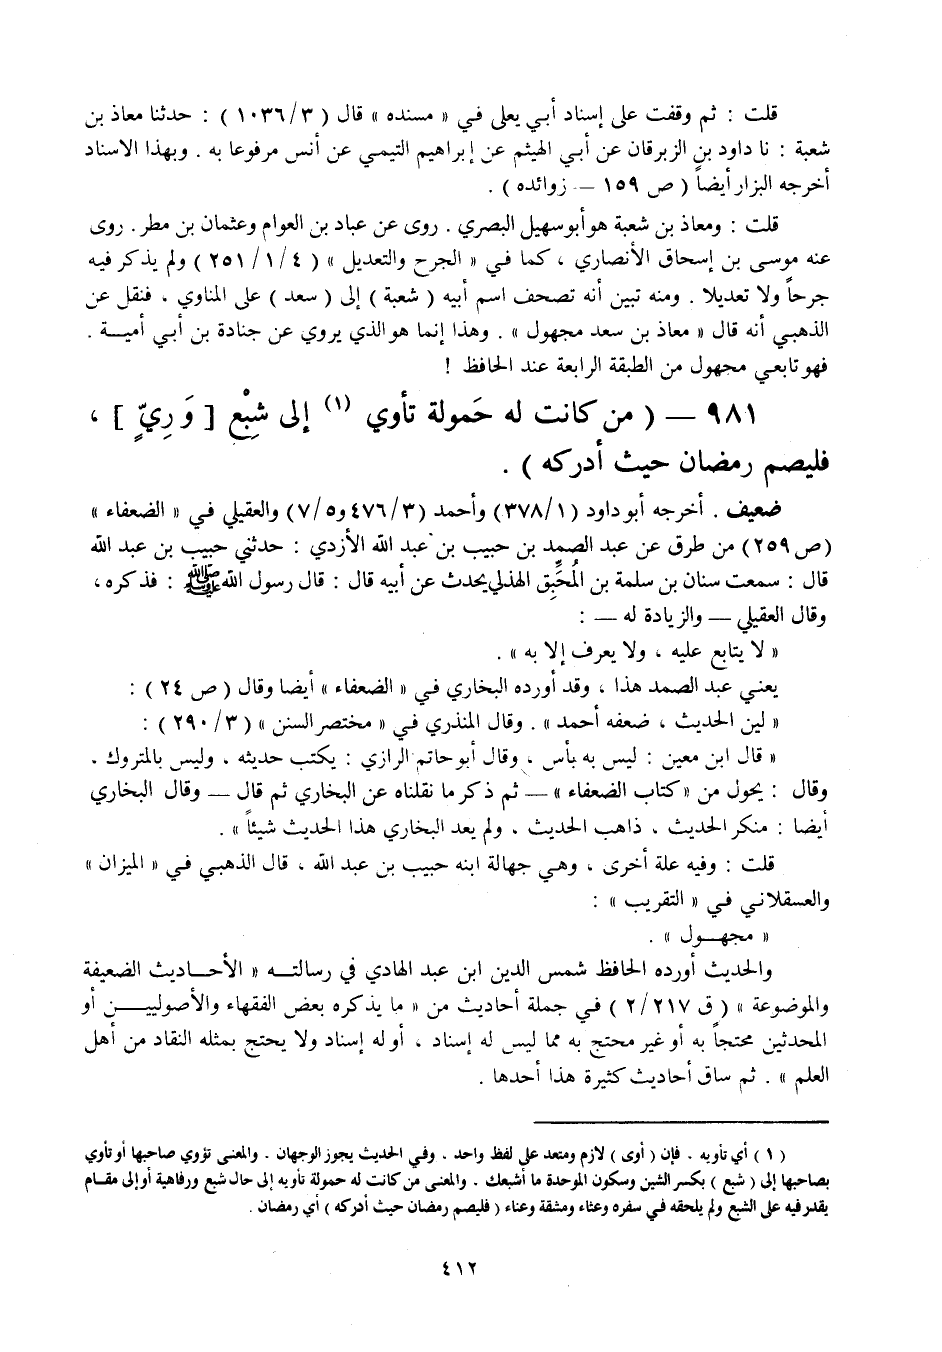 قلت : ثم وقفت على إسناد أبي يعلى في « مسنده » قال ( ٣/ ١٠٣٦ ) : حدثنا معاذ بن
شعبة : نا داود بن الزبرقان عن أبي الهيثم عن إبراهيم التيمي عن أنس مرفوعا به . وبهذا الاسناد
أخرجه البزار أيضاً ( ص ١٥٩ — زوائده ) .
قلت : ومعاذ بن شعبة هو أبو سهيل البصري . روى عن عباد بن العوام وعثمان بن مطر . روى
عنه موسى بن إسحاق الأنصاري ، كما في « الجرح والتعديل » ( ٤/ ١/ ٢٥١ ) ولم يذكر فيه
جرحاً ولا تعديلا . ومنه تبين أنه تصحف اسم أبيه ( شعبة ) إلى ( سعد ) على المناوي ، فنقل عن
الذهبي أنه قال « معاذ بن سعد مجهول » . وهذا إنما هو الذي يروي عن جنادة بن أبي أميــة .
فهو تابعي مجهول من الطبقة الرابعة عند الحافظ !
٩٨١ — ( من كانت له حَمولة تأوي (١) إلى شِبْع [ وَرِيّ ] ،
فليصم رمضان حيث أدركه ) .
ضعيف . أخرجه أبو داود (٣٧٨/١) وأحمد (٤٧٦/٣ و٧/٥) والعقيلي في « الضعفاء »
(ص ٢٥٩) من طرق عن عبد الصمد بن حبيب بن عبد الله الأزدي : حدثني حبيب بن عبد الله
قال : سمعت سنان بن سلمة بن المُحَبِّق الهذلي يحدث عن أبيه قال : قال رسول الله ﷺ : فذكره ،
وقال العقيلي — والزيادة له — :
« لا يتابع عليه ، ولا يعرف إلا به » .
يعني عبد الصمد هذا ، وقد أورده البخاري في « الضعفاء » أيضا وقال ( ص ٢٤ ) :
« لين الحديث ، ضعفه أحمد » . وقال المنذري في « مختصر السنن » ( ٣/ ٢٩٠ ) :
« قال ابن معين : ليس به بأس ، وقال أبو حاتم الرازي : يكتب حديثه ، وليس بالمتروك .
وقال : يحول من « كتاب الضعفاء » — ثم ذكر ما نقلناه عن البخاري ثم قال — وقال البخاري
أيضا : منكر الحديث ، ذاهب الحديث ، ولم يعد البخاري هذا الحديث شيئاً » .
قلت : وفيه علة أخرى ، وهي جهالة ابنه حبيب بن عبد الله ، قال الذهبي في « الميزان »
والعسقلاني في « التقريب » :
« مجهــول » .
والحديث أورده الحافظ شمس الدين ابن عبد الهادي في رسالتــه « الأحــاديث الضعيفة
والموضوعة » ( ق ٢١٧/ ٢ ) في جملة أحاديث من « ما يذكره بعض الفقهاء والأصوليــــن أو
المحدثين محتجاً به أو غير محتج به مما ليس له إسناد ، أو له إسناد ولا يحتج بمثله النقاد من أهل
العلم » . ثم ساق أحاديث كثيرة هذا أحدها .
( ١ ) أي تأويه . فإن ( أوى ) لازم ومتعد على لفظ واحد ، وفي الحديث يجوز الوجهان . والمعنى تؤوي صاحبها أو تأوي
بصاحبها إلى ( شبع ) بكسر الشين وسكون الموحدة ما أشبعك . والمعنى من كانت له حمولة تأويه إلى حال شبع ورفاهية أو إلى مقــام
يقدر فيه على الشبع ولم يلحقه في سفره وعثاء ومشقة وعناء ( فليصم رمضان حيث أدركه ) أي رمضان .
٤١٢